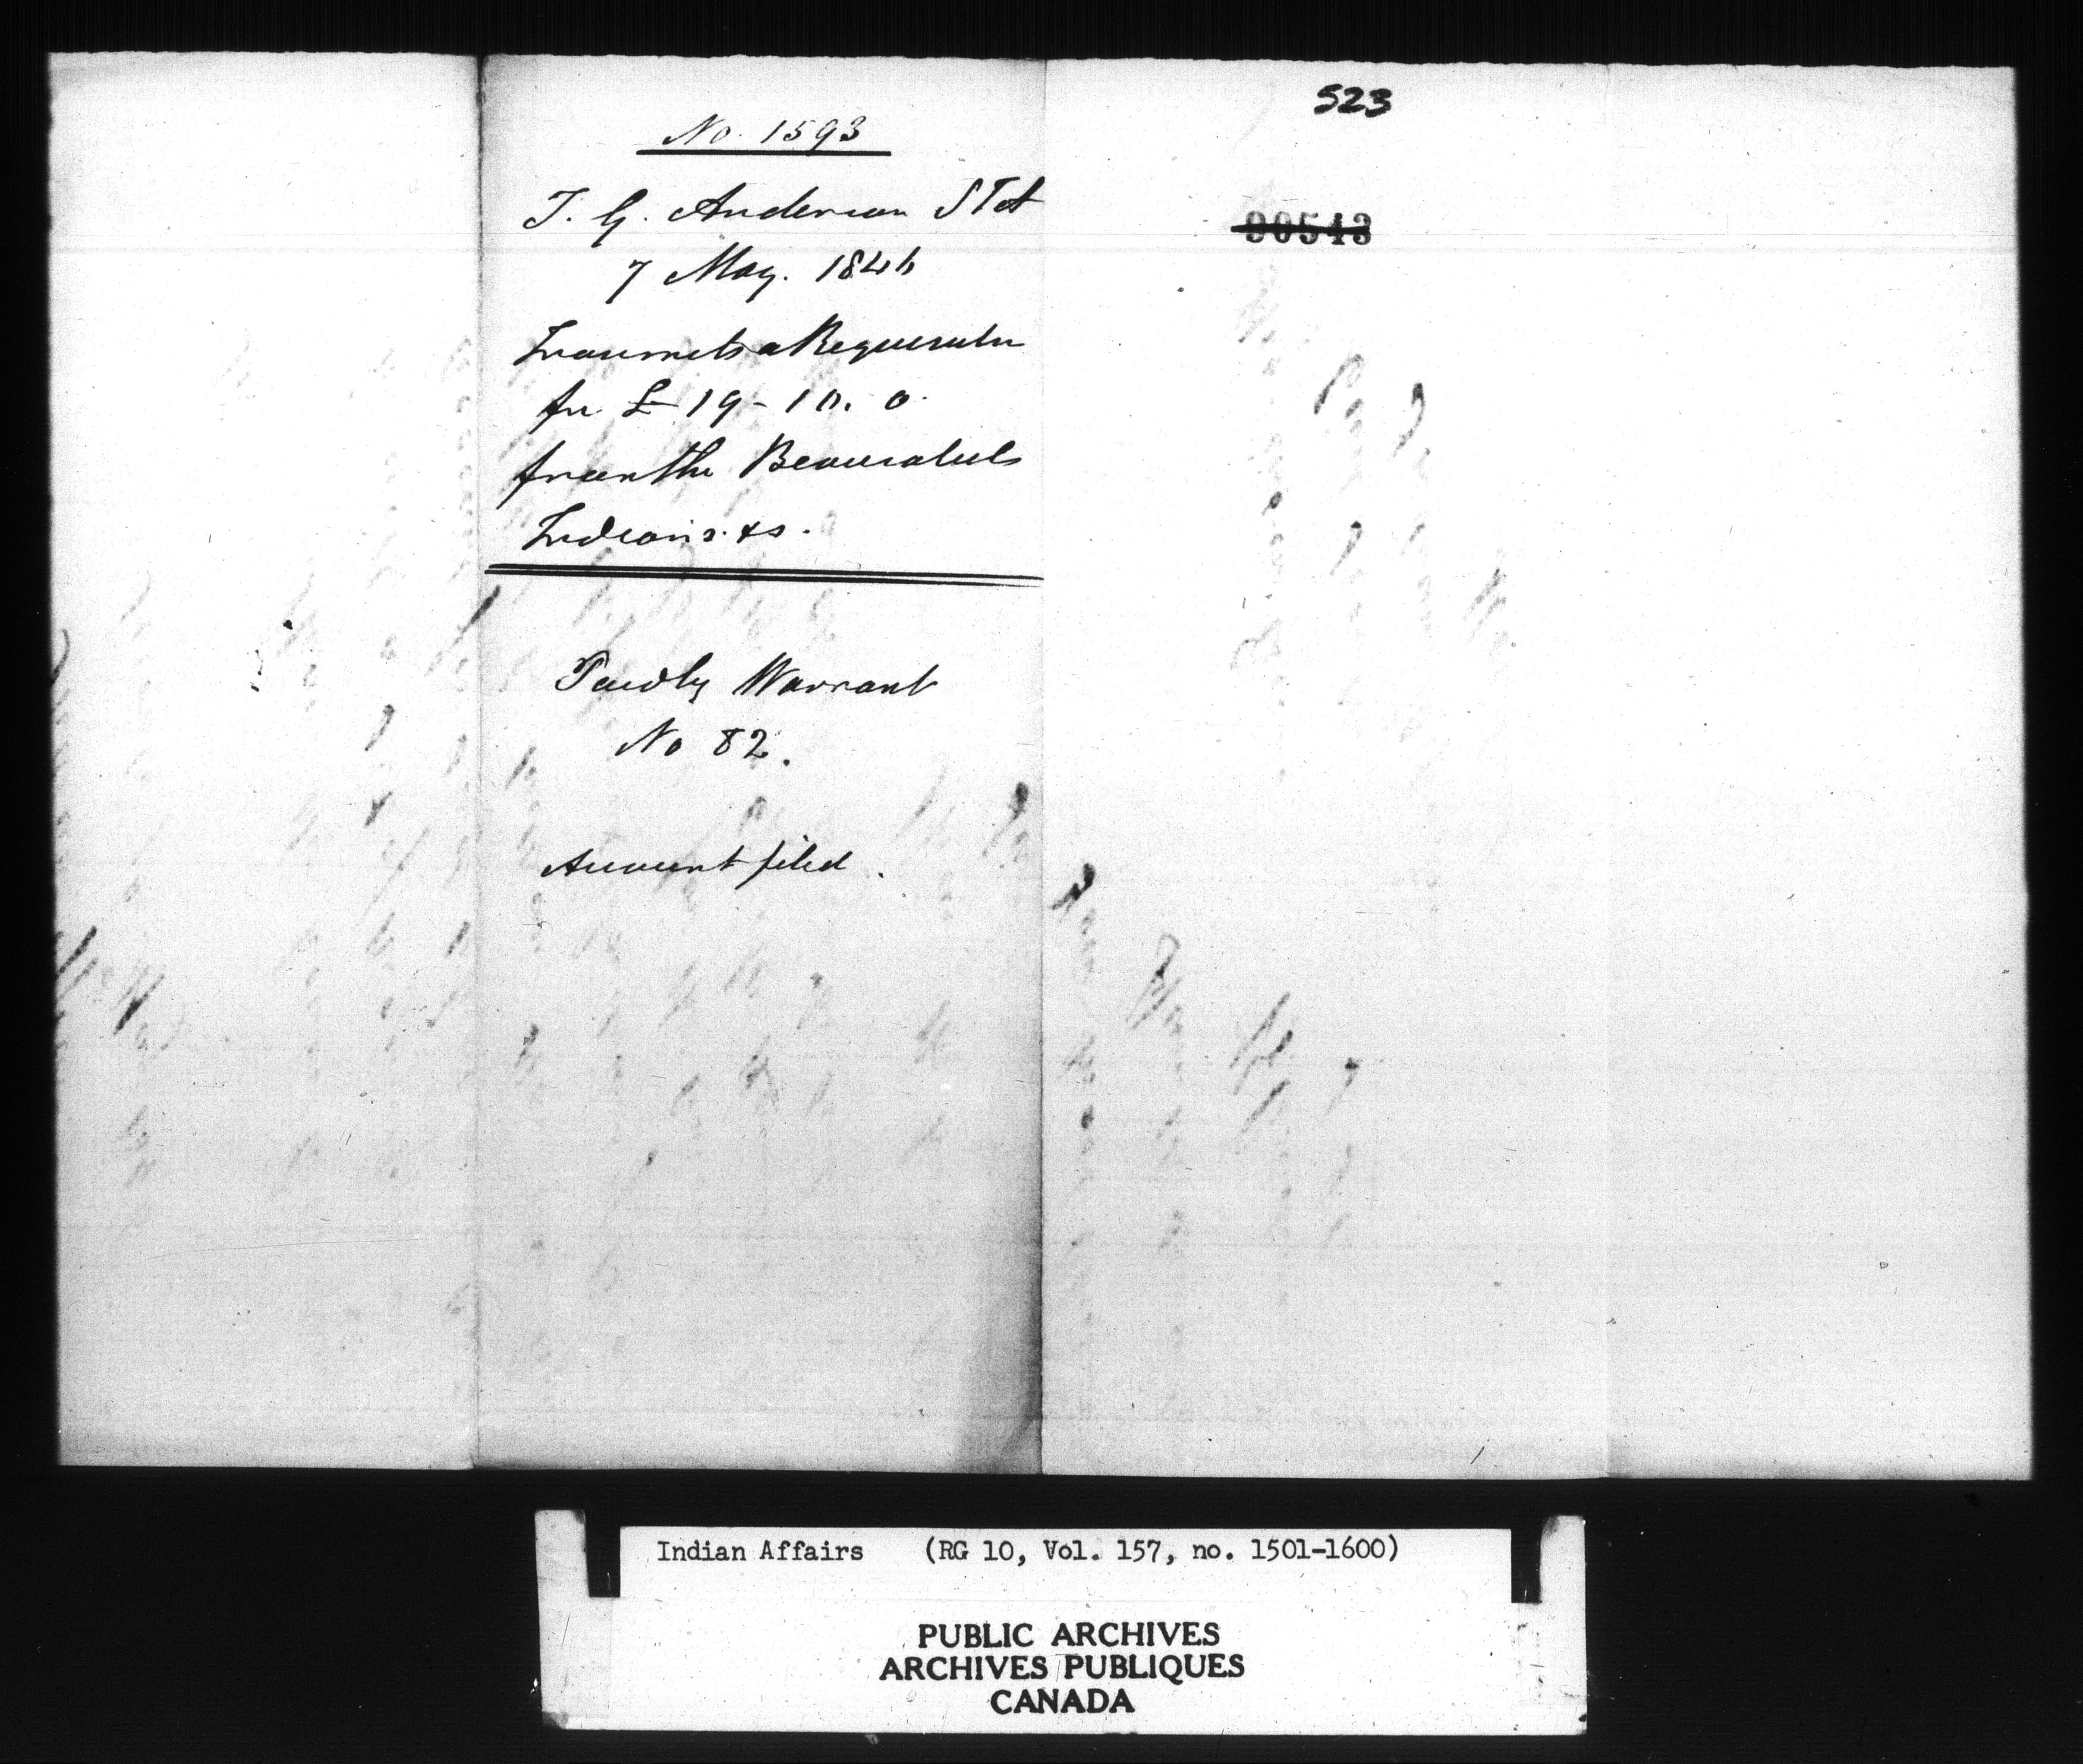 523
90543
No. 1593
T. G. Anderson S I A
7 May. 1846
Transmits a Requisition
for £19-10. 0.
from the Beausoleil
Indians. &c.
Paid by Warrant
No 82.
Account filed.
Indian Affairs (RG 10, Vol. 157, no. 1501-1600)
PUBLIC ARCHIVES
ARCHIVES PUBLIQUES
CANADA